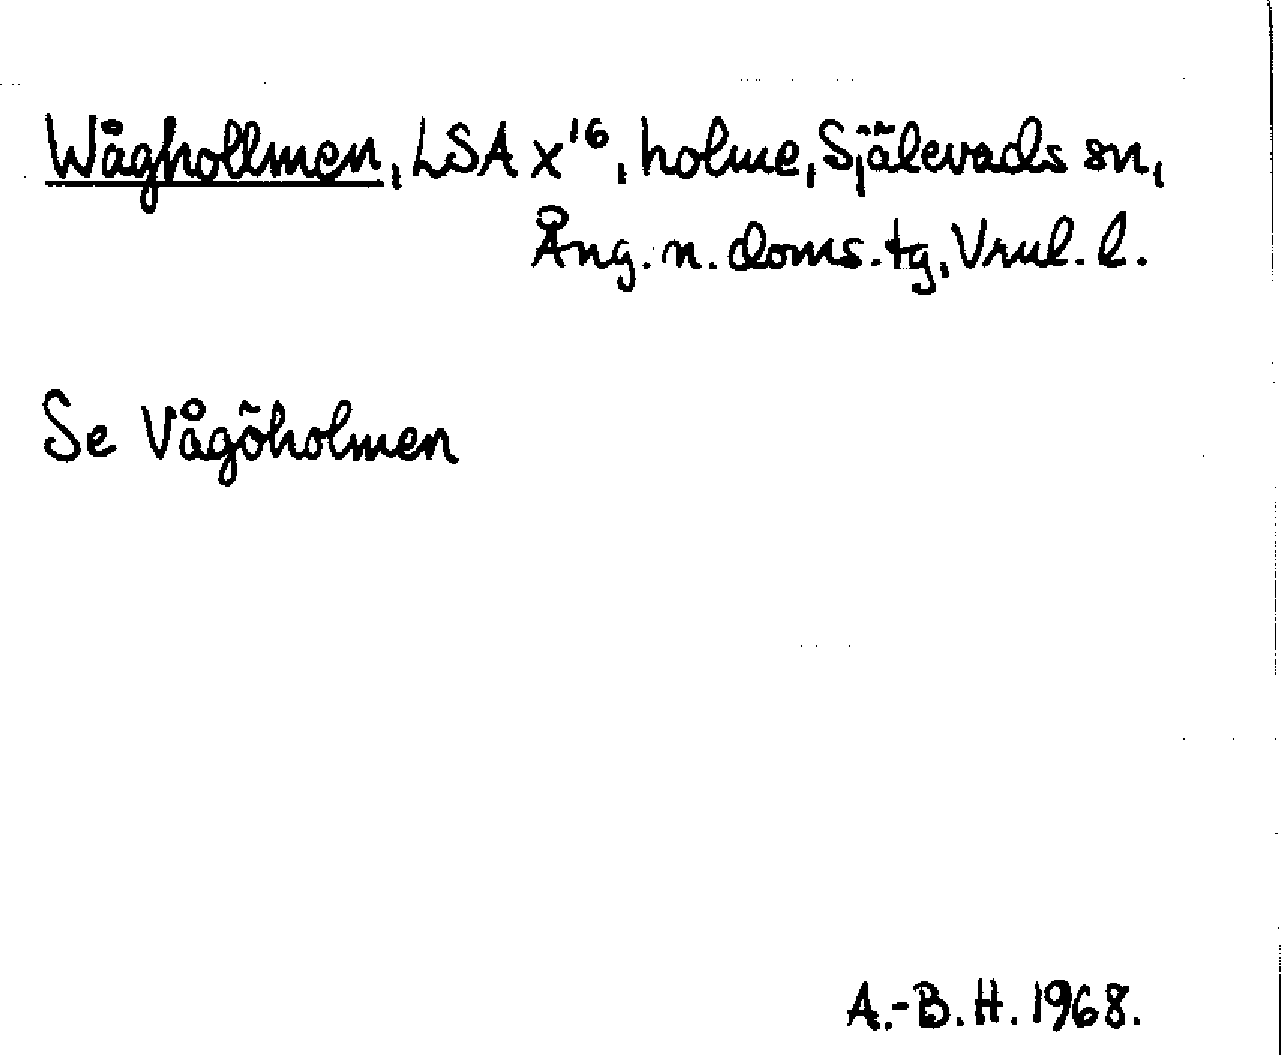 Wåghollmen, LSA x¹⁶, holme, Själevads sn,
Ång. n. doms. tg, Vrnl. l.
Se Vågöholmen
A.-B. H. 1968.